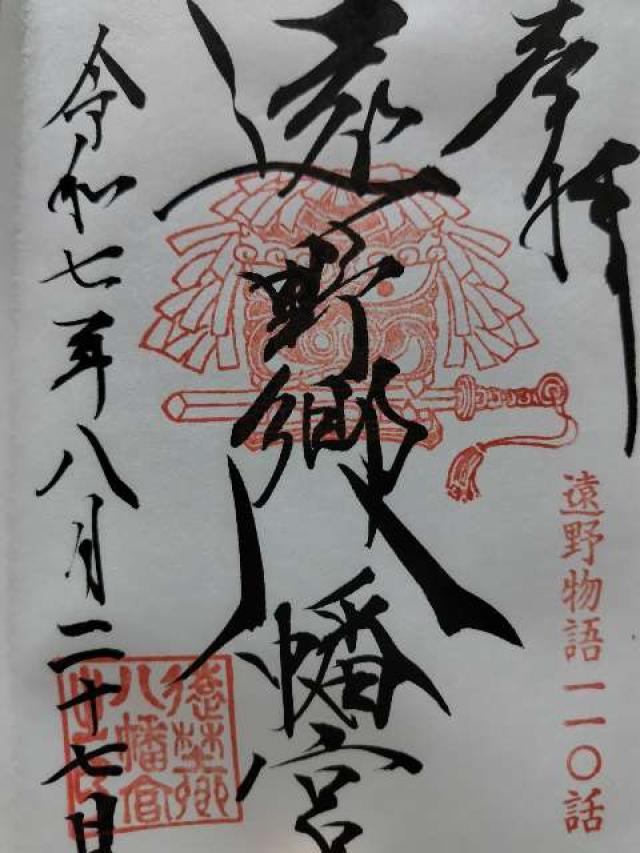 奉拝
遠野物語一一〇話
遠野郷八幡宮
令和七年八月二十七日
遠野郷
八幡宮